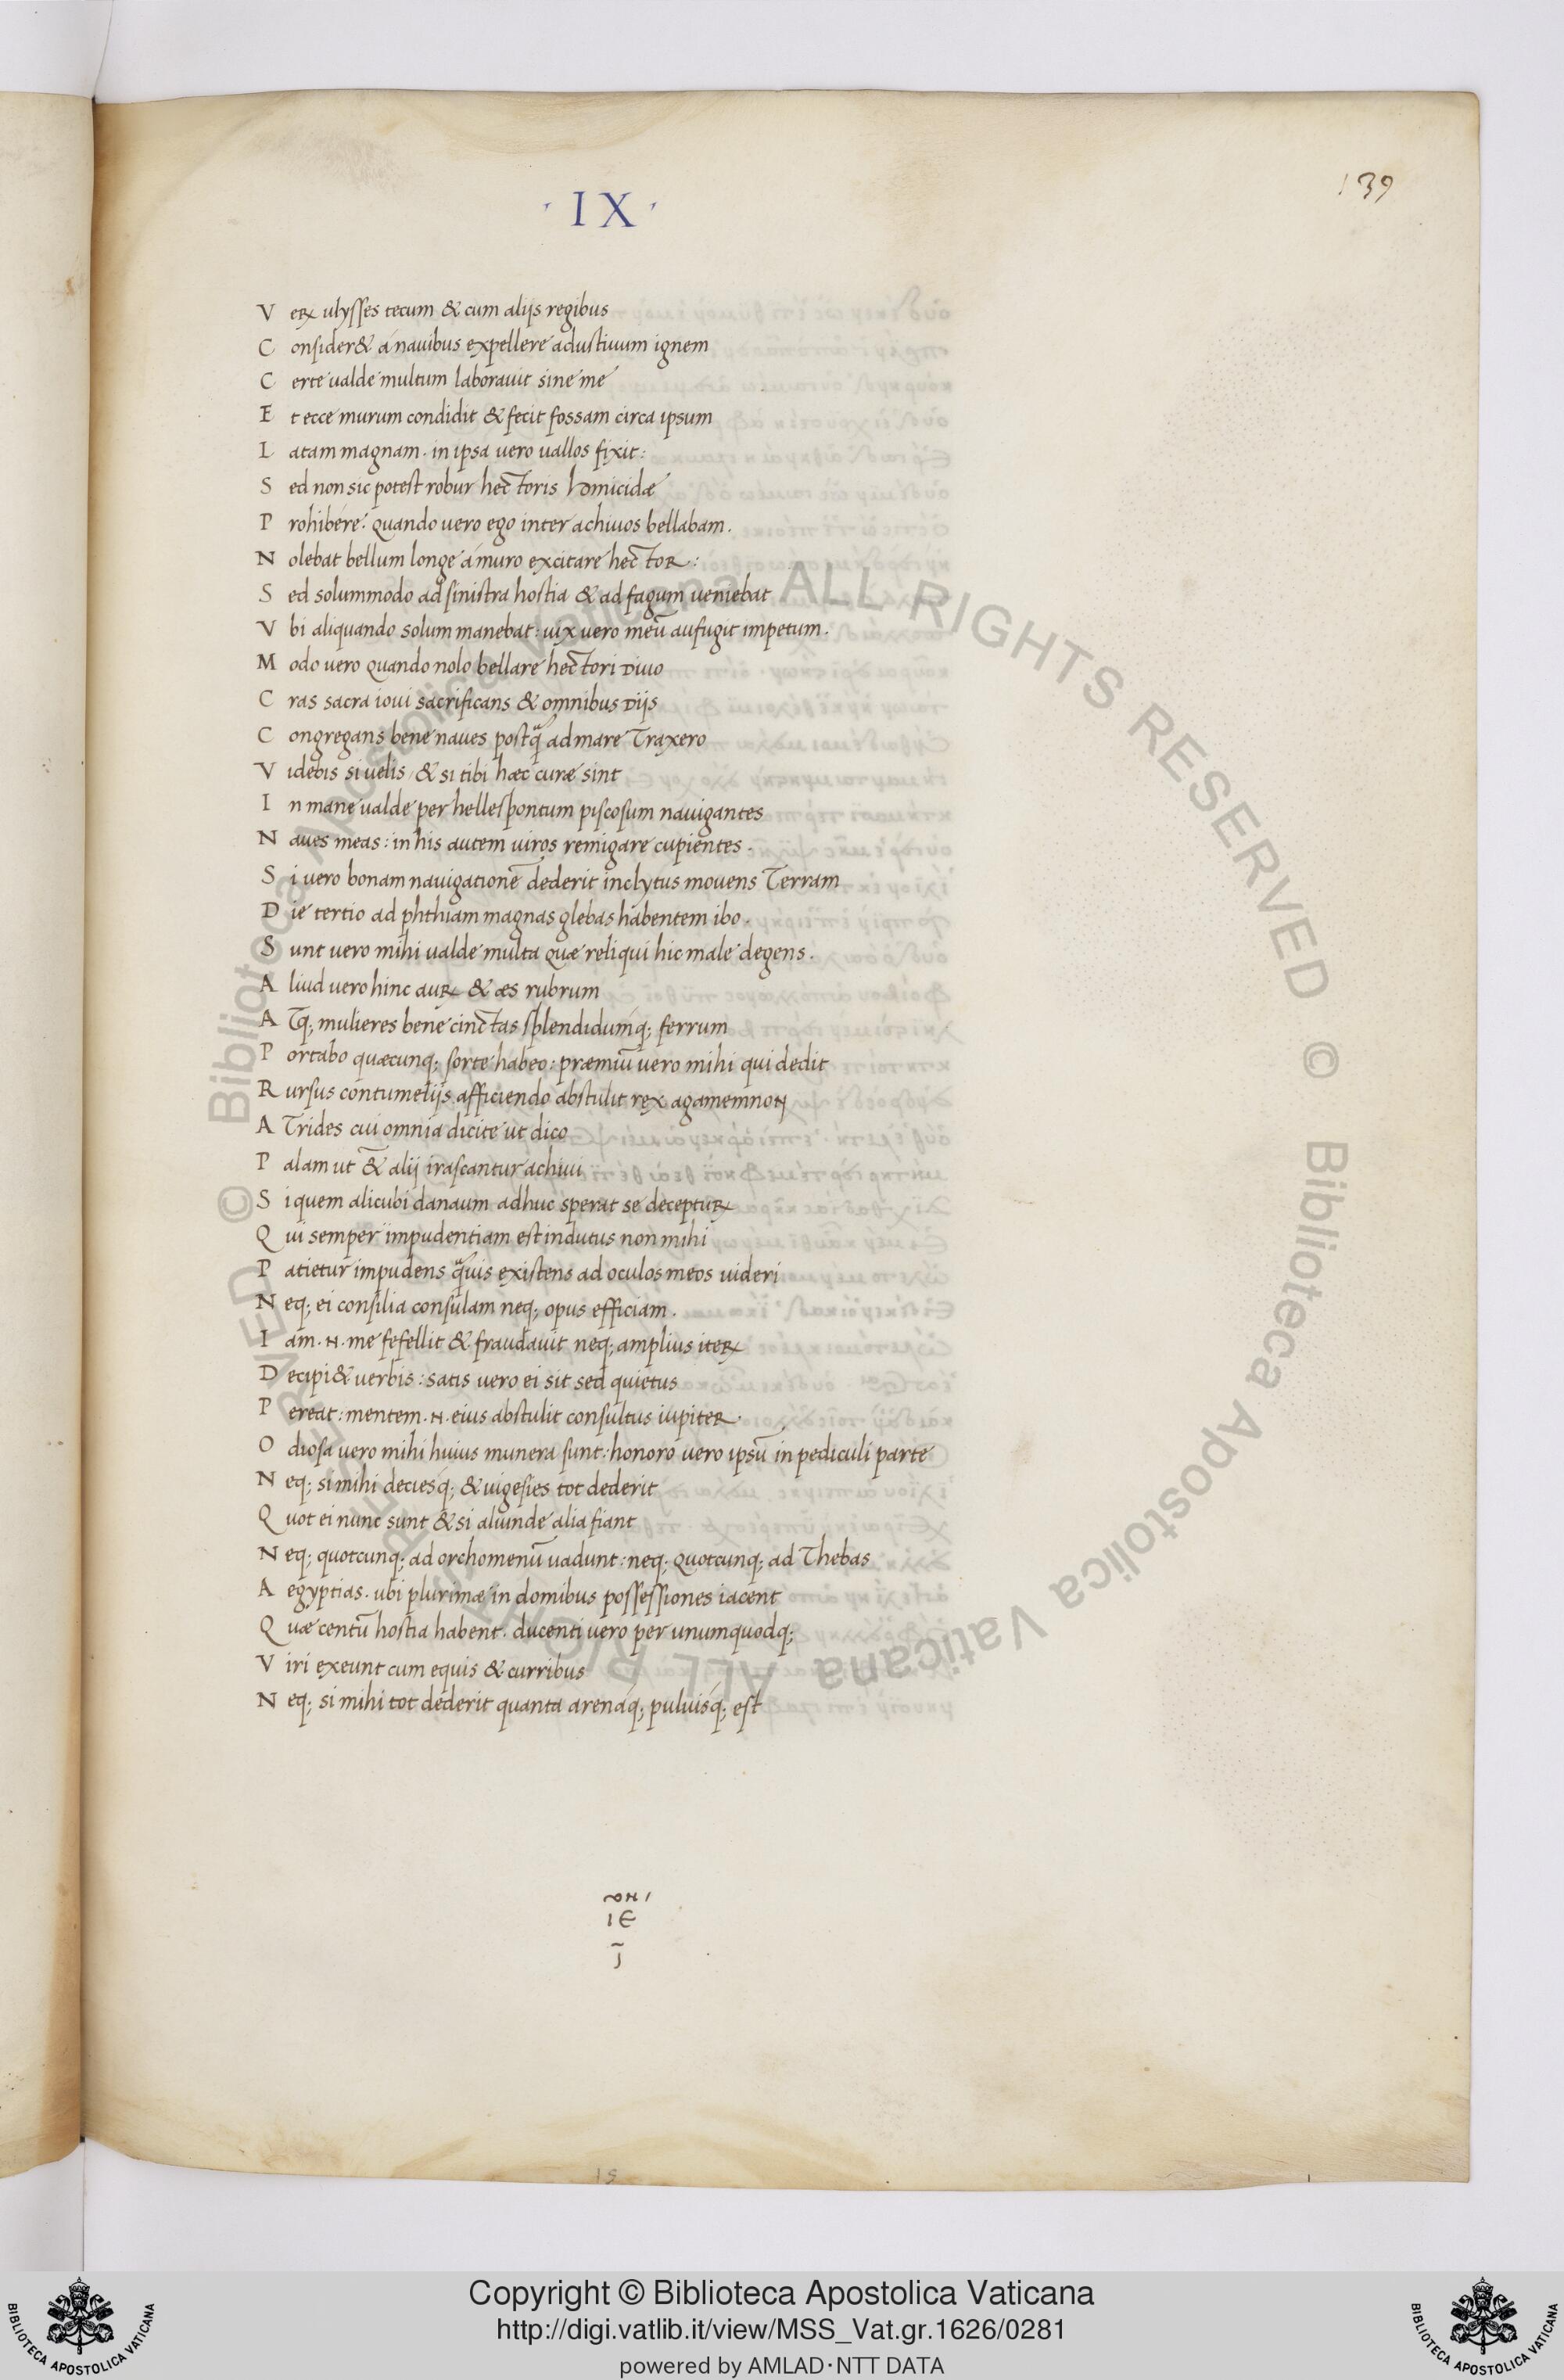 · IX ·
139
V eꝝ ulysses tecum & cum alijs regibus
C onsider& á nauibus expellere adustiuum ignem
C erte ualde multum laborauit sine me
E t ecce murum condidit & fecit fossam circa ipsum
L atam magnam. in ipsa uero uallos fixit:
S ed non sic potest robur hectoris homicidæ
P rohibere: quando uero ego inter achiuos bellabam.
N olebat bellum longe á muro excitare hector:
S ed solummodo ad sinistra hostia & ad fagum ueniebat
V bi aliquando solum manebat: uix uero meũ aufugit impetum.
M odo uero quando nolo bellare hectori diuo
C ras sacra ioui sacrificans & omnibus dijs
C ongregans bene naues postq̃ ad mare traxero
V idebis si uelis / & si tibi hæc curæ sint
I n mane ualde per hellespontum piscosum nauigantes
N aues meas: in his autem uiros remigare cupientes.
S i uero bonam nauigationẽ dederit inclytus mouens Terram
D ie tertio ad phthiam magnas glebas habentem ibo.
S unt uero mihi ualde multa quæ reliqui hic male degens.
A liud uero hinc auꝝ & æs rubrum
A tq; mulieres bene cinctas splendidumq; ferrum
P ortabo quæcunq; sorte habeo: præmiũ uero mihi qui dedit
R ursus contumelijs afficiendo abstulit rex agamemnon
A Trides cui omnia dicite ut dico
P alam ut & alij irascantur achiui
S i quem alicubi danaum adhuc sperat se deceptuꝝ
Q ui semper impudentiam est indutus non mihi
P atietur impudens q̃uis existens ad oculos meos uideri
N eq; ei consilia consulam neq; opus efficiam.
I am .n. me fefellit & fraudauit neq; amplius iteꝝ
D ecipi& uerbis: satis uero ei sit sed quietus
P ereat: mentem .n. eius abstulit consultus iupiter.
O diosa uero mihi huius munera sunt: honoro uero ipsũ in pediculi parte
N eq; si mihi deciesq; & uigesies tot dederit
Q uot ei nunc sunt & si aliunde alia fiant
N eq; quotcunq; ad orchomenũ uadunt: neq; quotcunq; ad Thebas
A egyptias. ubi plurimæ in domibus possessiones iacent
Q uæ centũ hostia habent. ducenti uero per unumquodq;
V iri exeunt cum equis & curribus
N eq; si mihi tot dederit quanta arenaq; puluisq; est
15
Copyright © Biblioteca Apostolica Vaticana
http://digi.vatlib.it/view/MSS_Vat.gr.1626/0281
powered by AMLAD·NTT DATA
BIBLIOTECA APOSTOLICA VATICANA
BIBLIOTECA APOSTOLICA VATICANA
© Biblioteca Apostolica Vaticana ALL RIGHTS RESERVED © Biblioteca Apostolica Vaticana ALL RIGHTS RESERVED